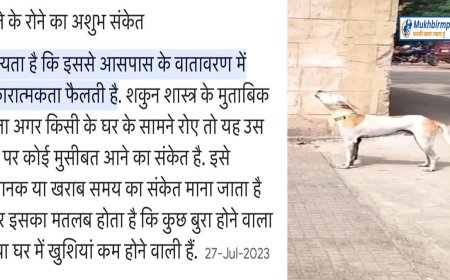 ने के रोने का अशुभ संकेत
न्यता है कि इससे आसपास के वातावरण में
कारात्मकता फैलती है. शकुन शास्त्र के मुताबिक
ता अगर किसी के घर के सामने रोए तो यह उस
पर कोई मुसीबत आने का संकेत है. इसे
ानक या खराब समय का संकेत माना जाता है
र इसका मतलब होता है कि कुछ बुरा होने वाला
या घर में खुशियां कम होने वाली हैं. 27-Jul-2023
Mukhbirmp